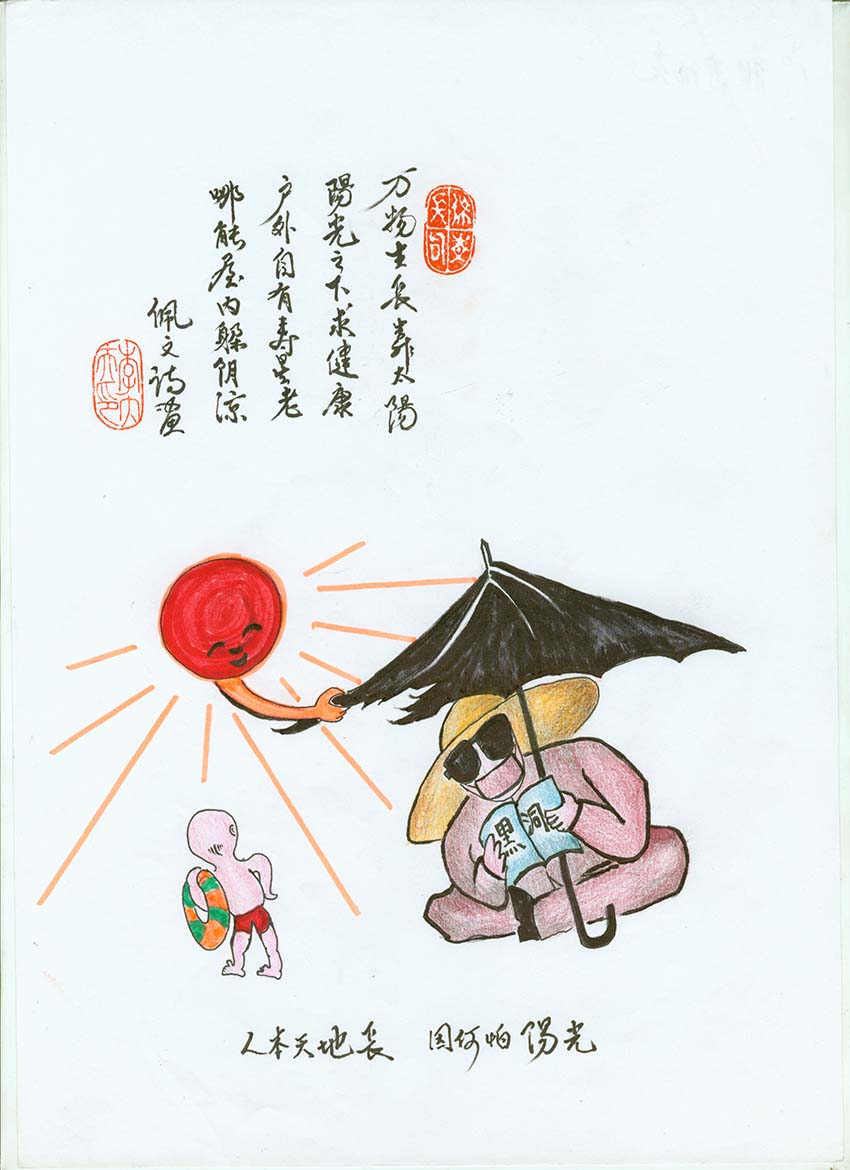 万物生長靠太陽
陽光之下求健康
户外自有寿星老
哪能屋内躲阴凉
佩文诗画
黑洞
人本天地長 因何怕陽光